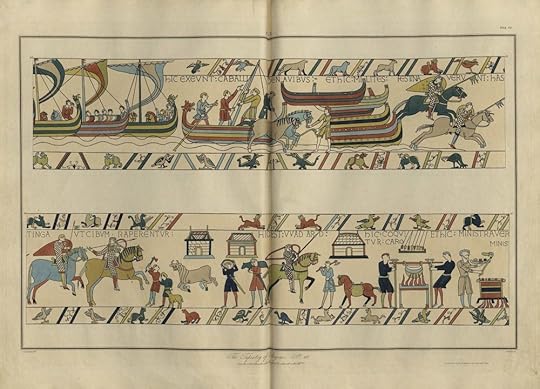 HIC EXEVNT: CABALLI DENAVIBVS: ET HIC: MILITES: FESTINA VERVNT: HAS
TINGA VT CIBVM: RAPERENTVR: HIC EST: VVADARD: HIC: COQVI ET HIC: MINISTRAVER
TVR: CARO MINIS
The Tapestry of Bayeux. Pl.